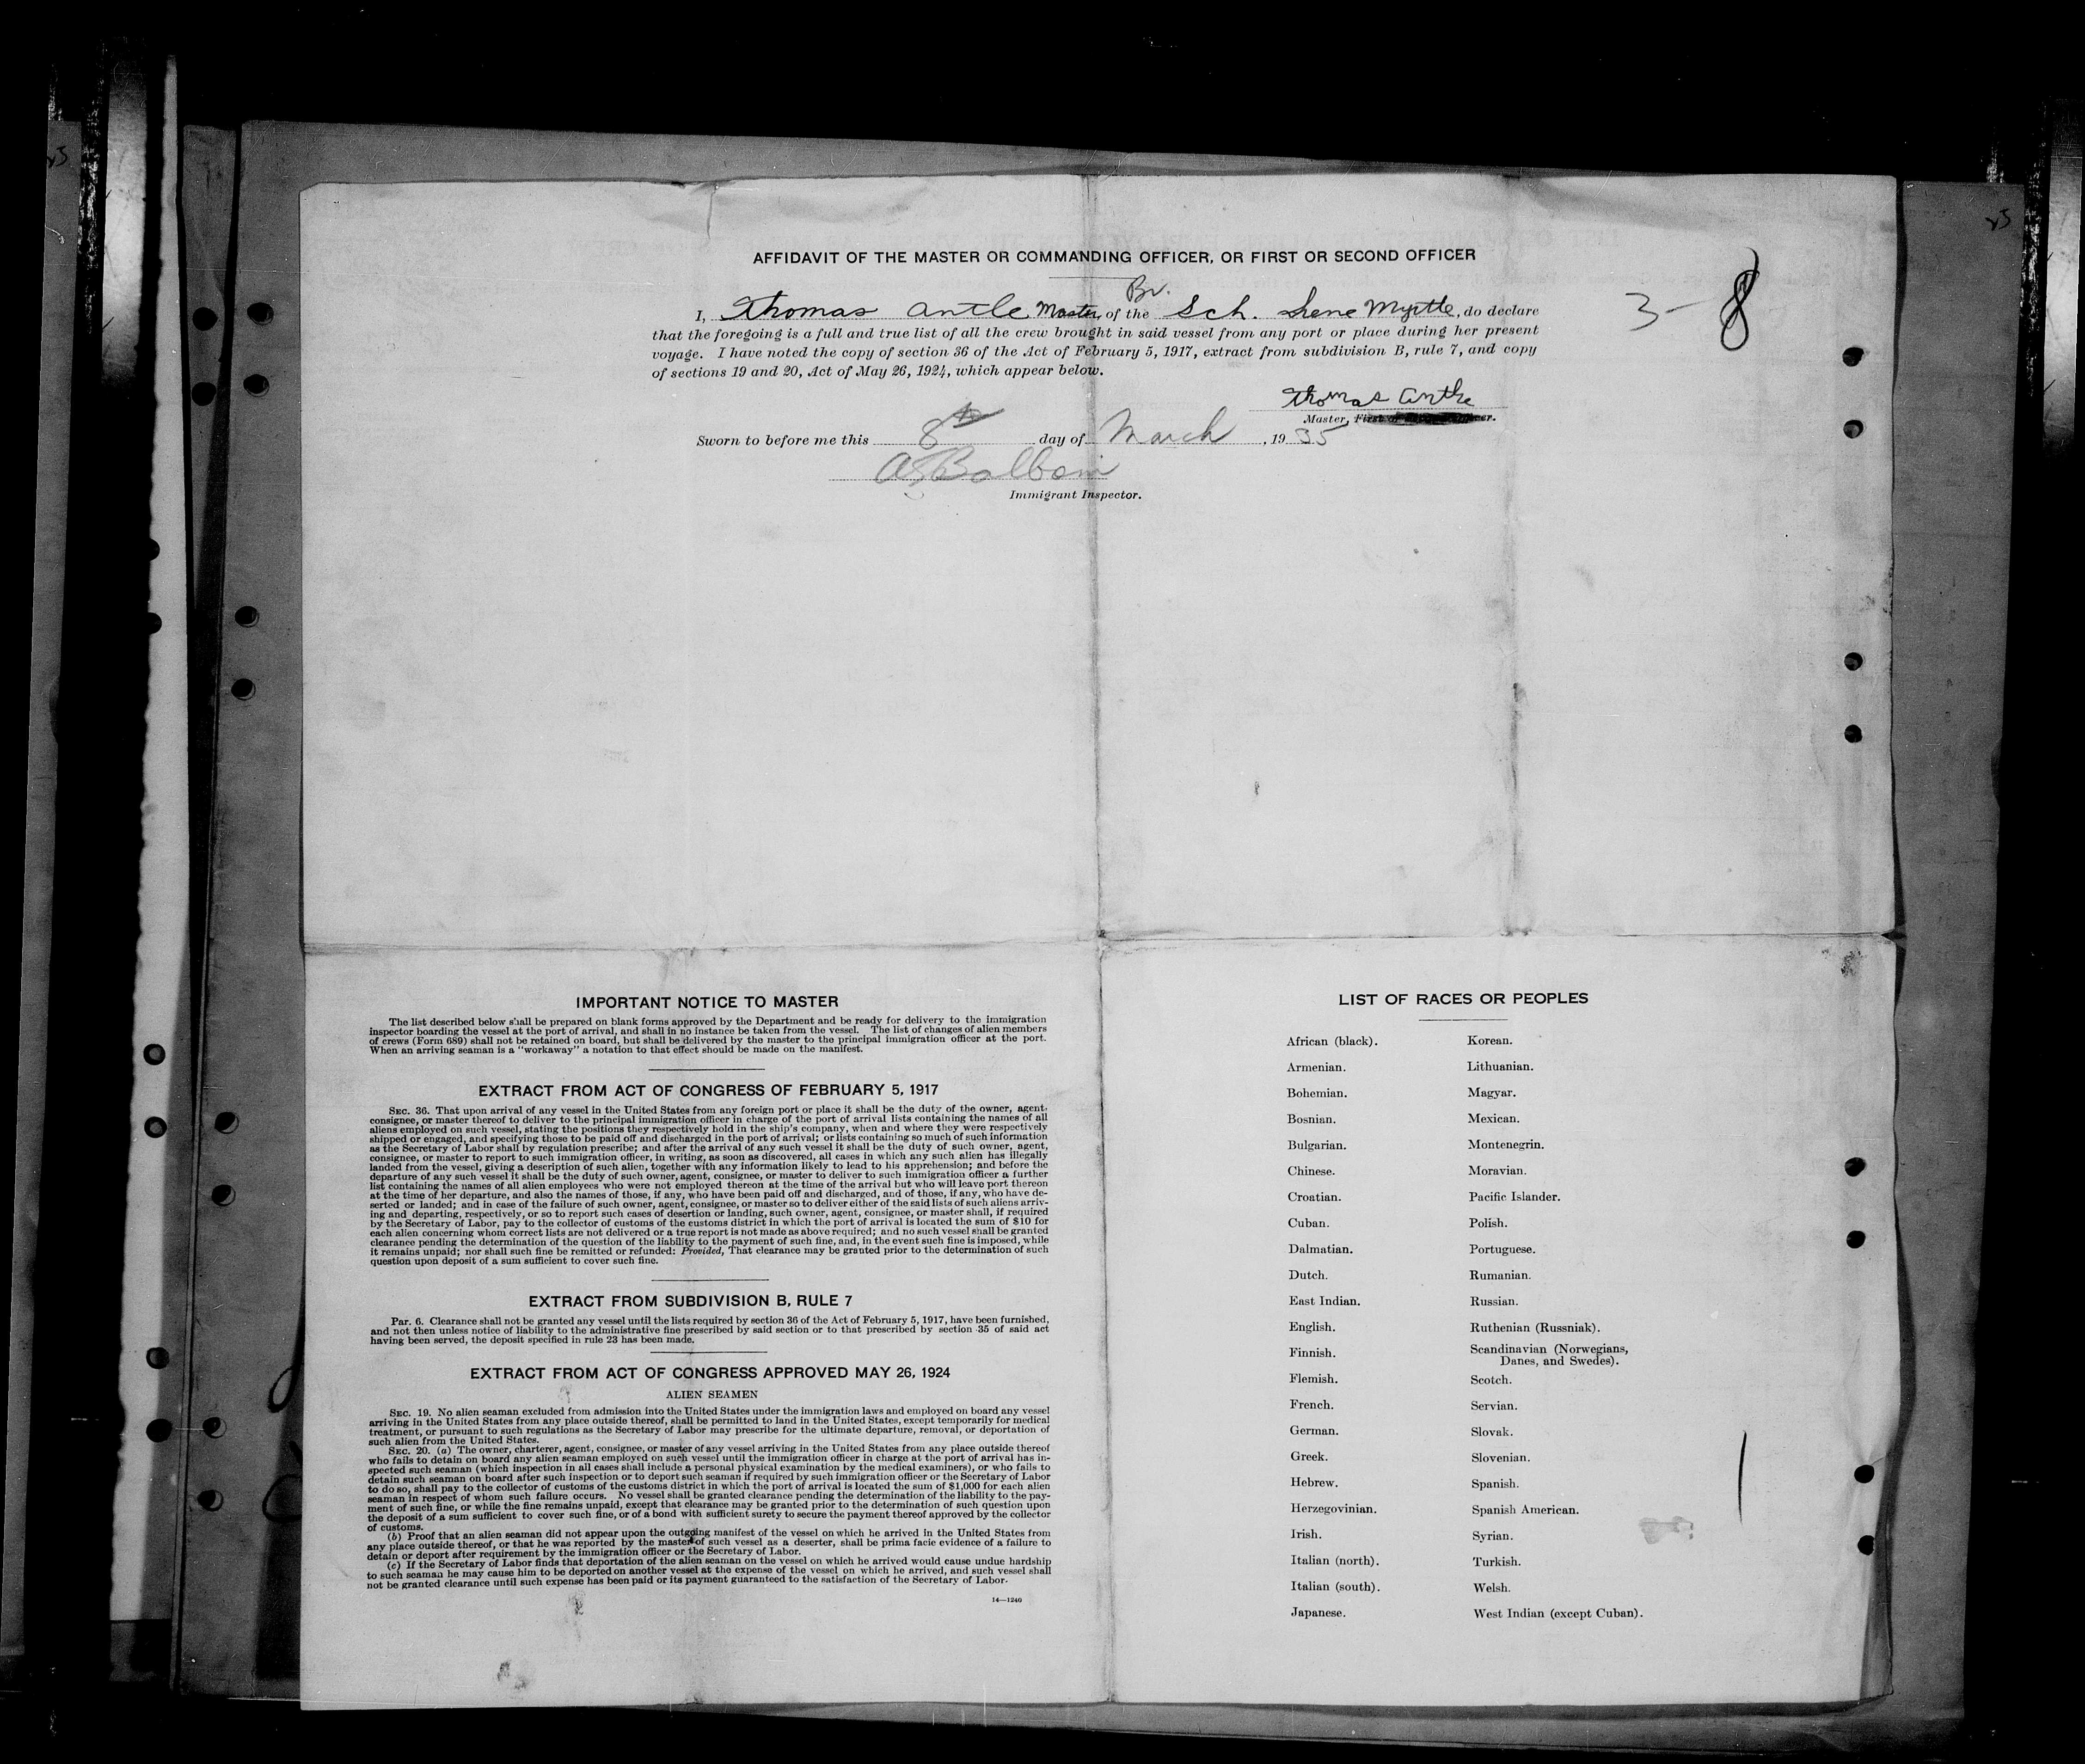 AFFIDAVIT OF THE MASTER OR COMMANDING OFFICER, OR FIRST OR SECOND OFFICER
Br.
I, Thomas Antle Master, of the Sch. Irene Myrtle, do declare
that the foregoing is a full and true list of all the crew brought in said vessel from any port or place during her present
voyage. I have noted the copy of section 36 of the Act of February 5, 1917, extract from subdivision B, rule 7, and copy
of sections 19 and 20, Act of May 26, 1924, which appear below.
3-8
Thomas Antle
Master, First or Officer.
Sworn to before me this 8th day of March, 1935
Immigrant Inspector.
IMPORTANT NOTICE TO MASTER
The list described below shall be prepared on blank forms approved by the Department and be ready for delivery to the immigration
inspector boarding the vessel at the port of arrival, and shall in no instance be taken from the vessel. The list of changes of alien members
of crews (Form 689) shall not be retained on board, but shall be delivered by the master to the principal immigration officer at the port.
When an arriving seaman is a "workaway" a notation to that effect should be made on the manifest.
EXTRACT FROM ACT OF CONGRESS OF FEBRUARY 5, 1917
SEC. 36. That upon arrival of any vessel in the United States from any foreign port or place it shall be the duty of the owner, agent,
consignee, or master thereof to deliver to the principal immigration officer in charge of the port of arrival lists containing the names of all
aliens employed on such vessel, stating the positions they respectively hold in the ship's company, when and where they were respectively
shipped or engaged, and specifying those to be paid off and discharged in the port of arrival; or lists containing so much of such information
as the Secretary of Labor shall by regulation prescribe; and after the arrival of any such vessel it shall be the duty of such owner, agent,
consignee, or master to report to such immigration officer, in writing, as soon as discovered, all cases in which any such alien has illegally
landed from the vessel, giving a description of such alien, together with any information likely to lead to his apprehension; and before the
departure of any such vessel it shall be the duty of such owner, agent, consignee, or master to deliver to such immigration officer a further
list containing the names of all alien employees who were not employed thereon at the time of the arrival but who will leave port thereon
at the time of her departure, and also the names of those, if any, who have been paid off and discharged, and of those, if any, who have de-
serted or landed; and in case of the failure of such owner, agent, consignee, or master so to deliver either of the said lists of such aliens arriv-
ing and departing, respectively, or so to report such cases of desertion or landing, such owner, agent, consignee, or master shall, if required
by the Secretary of Labor, pay to the collector of customs of the customs district in which the port of arrival is located the sum of $10 for
each alien concerning whom correct lists are not delivered or a true report is not made as above required; and no such vessel shall be granted
clearance pending the determination of the question of the liability to the payment of such fine, and, in the event such fine is imposed, while
it remains unpaid; nor shall such fine be remitted or refunded: Provided, That clearance may be granted prior to the determination of such
question upon deposit of a sum sufficient to cover such fine.
EXTRACT FROM SUBDIVISION B, RULE 7
Par. 6. Clearance shall not be granted any vessel until the lists required by section 36 of the Act of February 5, 1917, have been furnished,
and not then unless notice of liability to the administrative fine prescribed by said section or to that prescribed by section 35 of said act
having been served, the deposit specified in rule 23 has been made.
EXTRACT FROM ACT OF CONGRESS APPROVED MAY 26, 1924
ALIEN SEAMEN
SEC. 19. No alien seaman excluded from admission into the United States under the immigration laws and employed on board any vessel
arriving in the United States from any place outside thereof, shall be permitted to land in the United States, except temporarily for medical
treatment, or pursuant to such regulations as the Secretary of Labor may prescribe for the ultimate departure, removal, or deportation of
such alien from the United States.
SEC. 20. (a) The owner, charterer, agent, consignee, or master of any vessel arriving in the United States from any place outside thereof
who fails to detain on board any alien seaman employed on such vessel until the immigration officer in charge at the port of arrival has in-
spected such seaman (which inspection in all cases shall include a personal physical examination by the medical examiners), or who fails to
detain such seaman on board after such inspection or to deport such seaman if required by such immigration officer or the Secretary of Labor
to do so, shall pay to the collector of customs of the customs district in which the port of arrival is located the sum of $1,000 for each alien
seaman in respect of whom such failure occurs. No vessel shall be granted clearance pending the determination of the liability to the pay-
ment of such fine, or while the fine remains unpaid, except that clearance may be granted prior to the determination of such question upon
the deposit of a sum sufficient to cover such fine, or of a bond with sufficient surety to secure the payment thereof approved by the collector
of customs.
(b) Proof that an alien seaman did not appear upon the outgoing manifest of the vessel on which he arrived in the United States from
any place outside thereof, or that he was reported by the master of such vessel as a deserter, shall be prima facie evidence of a failure to
detain or deport after requirement by the immigration officer or the Secretary of Labor.
(c) If the Secretary of Labor finds that deportation of the alien seaman on the vessel on which he arrived would cause undue hardship
to such seaman he may cause him to be deported on another vessel at the expense of the vessel on which he arrived, and such vessel shall
not be granted clearance until such expense has been paid or its payment guaranteed to the satisfaction of the Secretary of Labor.
14—1240
LIST OF RACES OR PEOPLES
African (black).
Armenian.
Bohemian.
Bosnian.
Bulgarian.
Chinese.
Croatian.
Cuban.
Dalmatian.
Dutch.
East Indian.
English.
Finnish.
Flemish.
French.
German.
Greek.
Hebrew.
Herzegovinian.
Irish.
Italian (north).
Italian (south).
Japanese.
Korean.
Lithuanian.
Magyar.
Mexican.
Montenegrin.
Moravian.
Pacific Islander.
Polish.
Portuguese.
Rumanian.
Russian.
Ruthenian (Russniak).
Scandinavian (Norwegians,
Danes, and Swedes).
Scotch.
Servian.
Slovak.
Slovenian.
Spanish.
Spanish American.
Syrian.
Turkish.
Welsh.
West Indian (except Cuban).